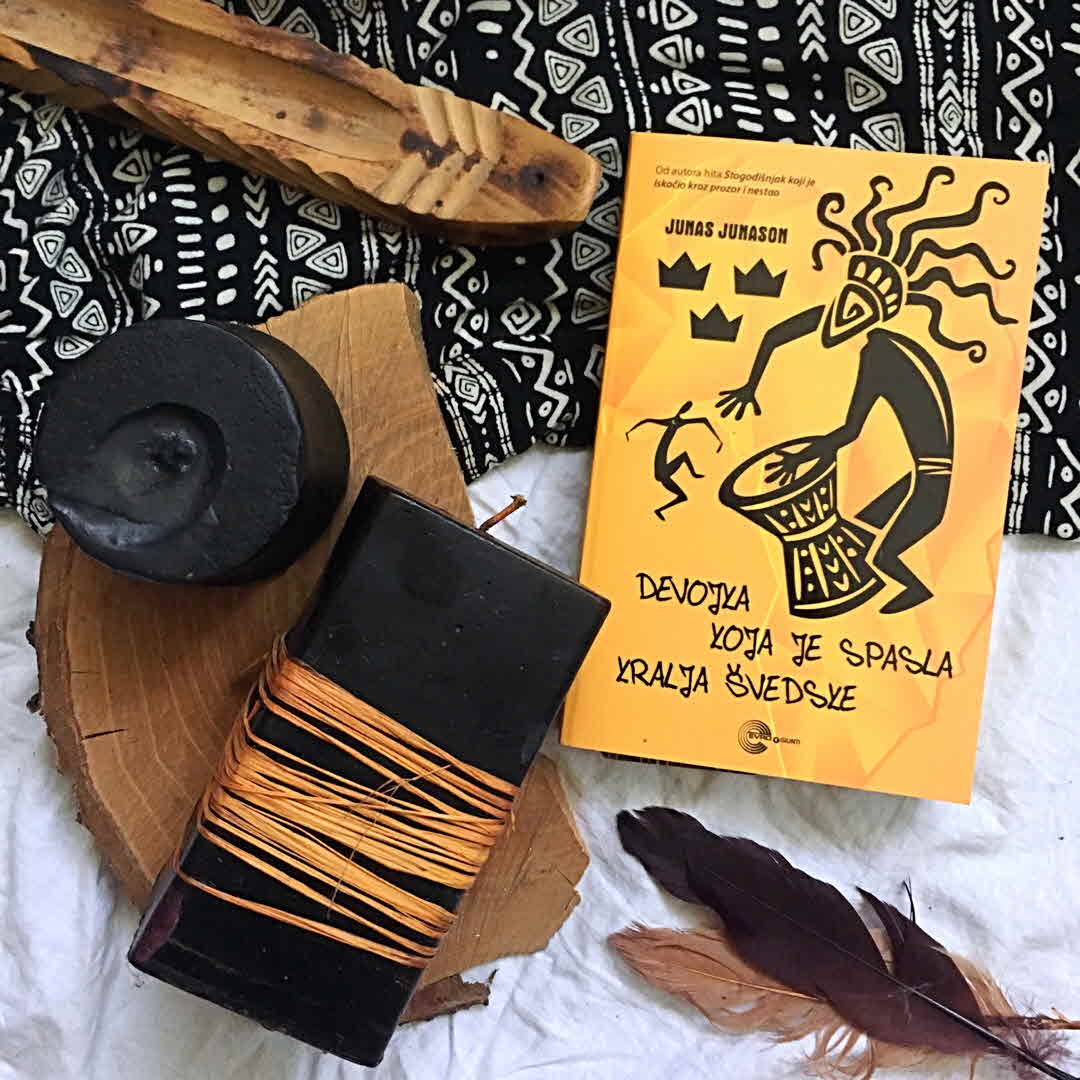 Od autora hita Stogodišnjak koji je
iskočio kroz prozor i nestao
JUNAS JUNASON
DEVOJKA
KOJA JE SPASLA
KRALJA ŠVEDSKE
EVRO GIUNTI